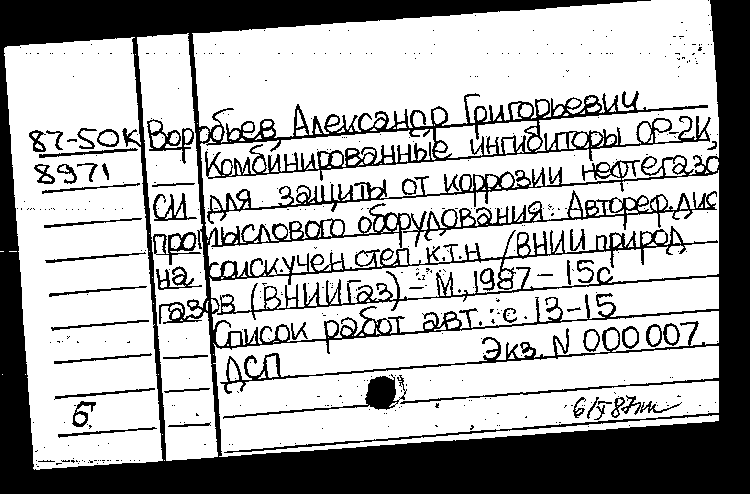 87-50К Воробьев Александр Григорьевич.
8971 Комбинированные ингибиторы ОР-2К,
СИ для защиты от коррозии нефтегазо
промыслового оборудования: Автореф.дис
на соиск.учен.степ. к.т.н. /ВНИИ природ
газов (ВНИИГаз).- М., 1987.- 15с
Список работ авт.: с. 13-15
ДСП Экз. N 000007.
б